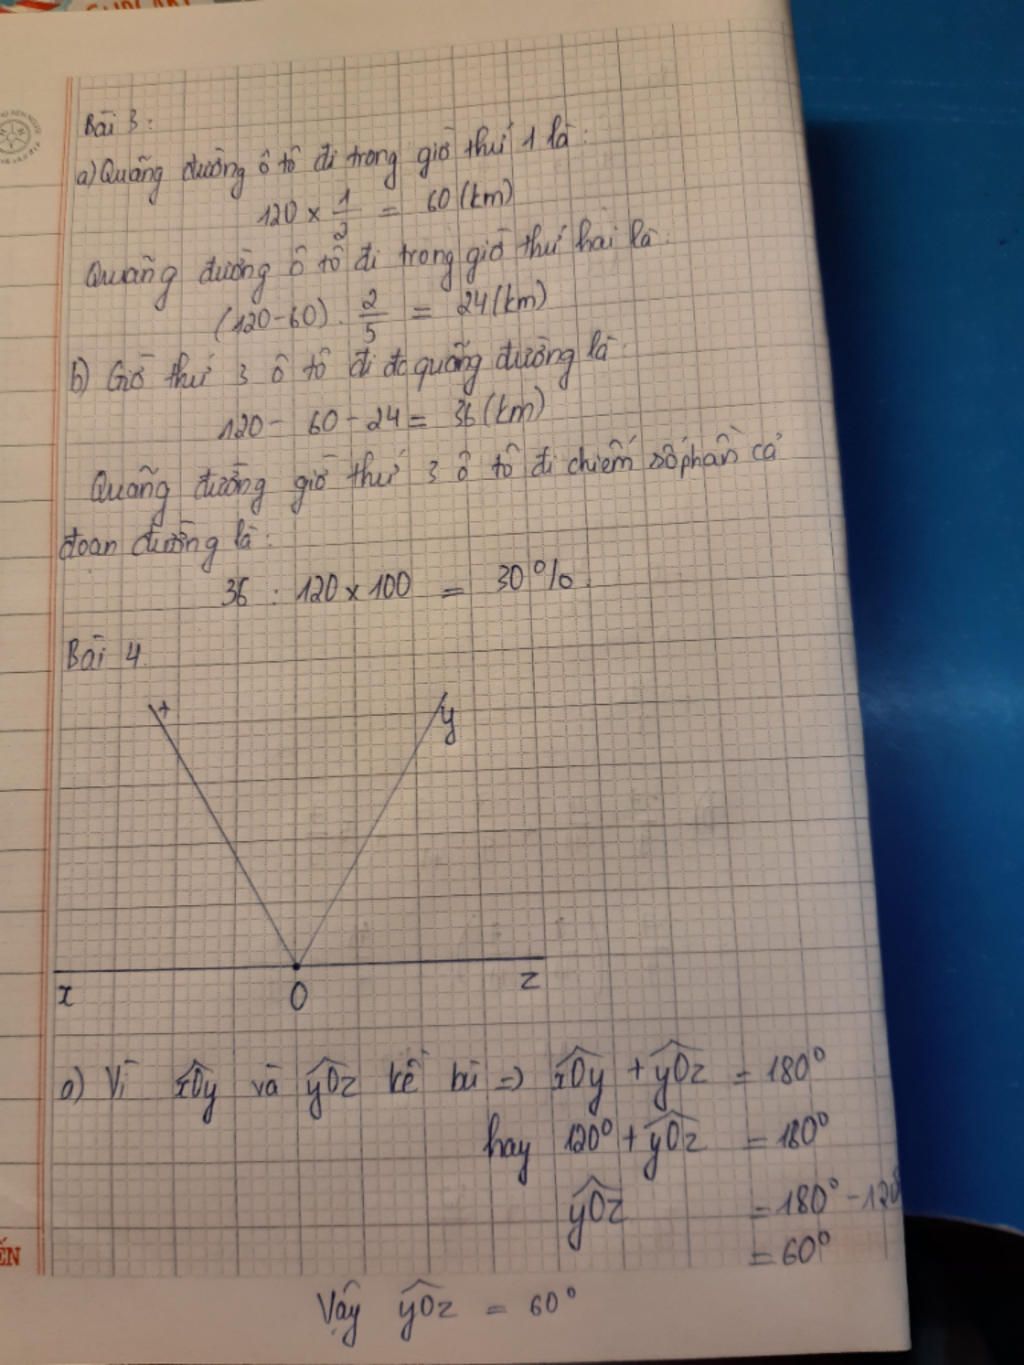 Bài 3:
a) Quãng đường ô tô đi trong giờ thứ 1 là:
120 × 1/2 = 60 (km)
Quãng đường ô tô đi trong giờ thứ hai là:
(120-60) . 2/5 = 24 (km)
b) Giờ thứ 3 ô tô đi đc quãng đường là:
120 - 60 - 24 = 36 (km)
Quãng đường giờ thứ 3 ô tô đi chiếm số phần cả
đoạn đường là:
36 : 120 × 100 = 30%.
Bài 4
t
y
x O z
a) Vì xOy và yOz kề bù => xOy + yOz = 180°
hay 120° + yOz = 180°
yOz = 180° - 120°
= 60°
ẾN
Vậy yOz = 60°